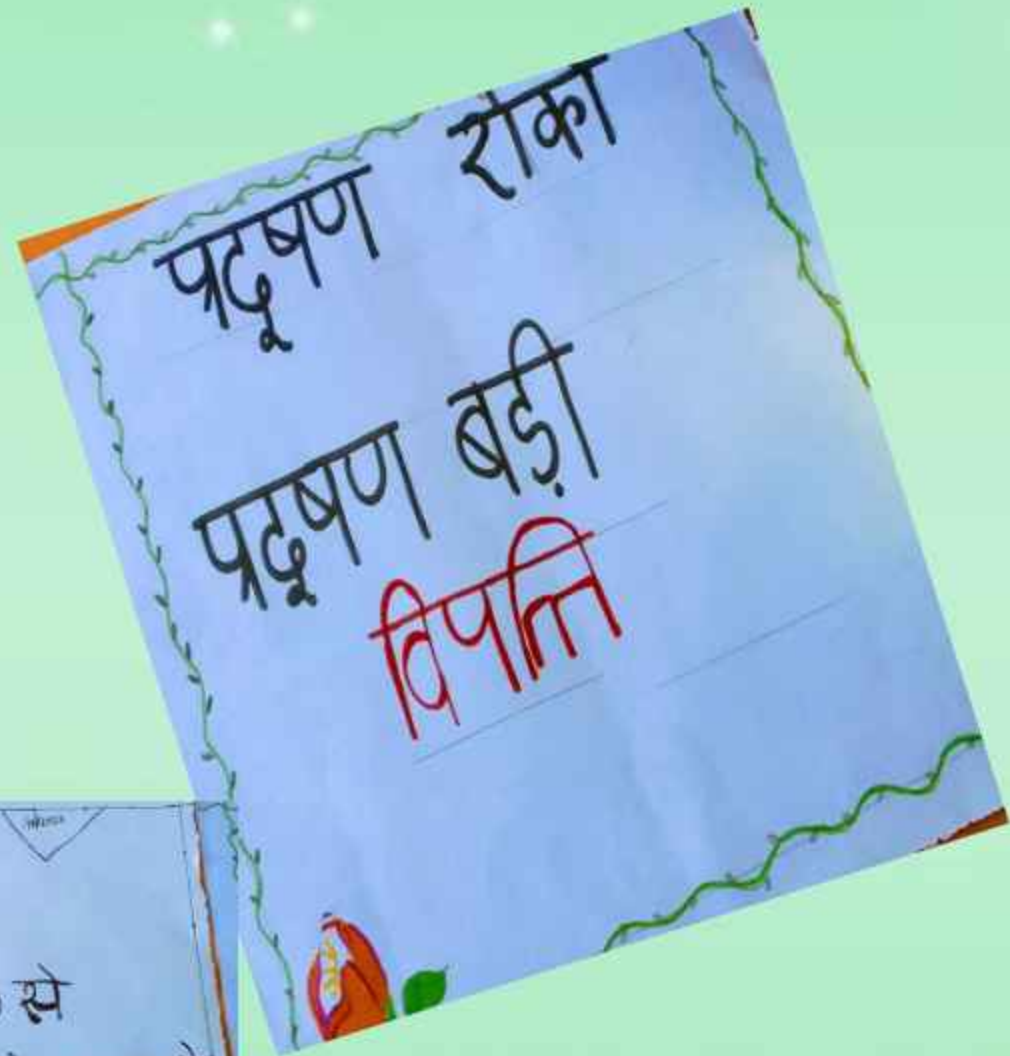 प्रदूषण रोको
प्रदूषण बड़ी
विपत्ति
से